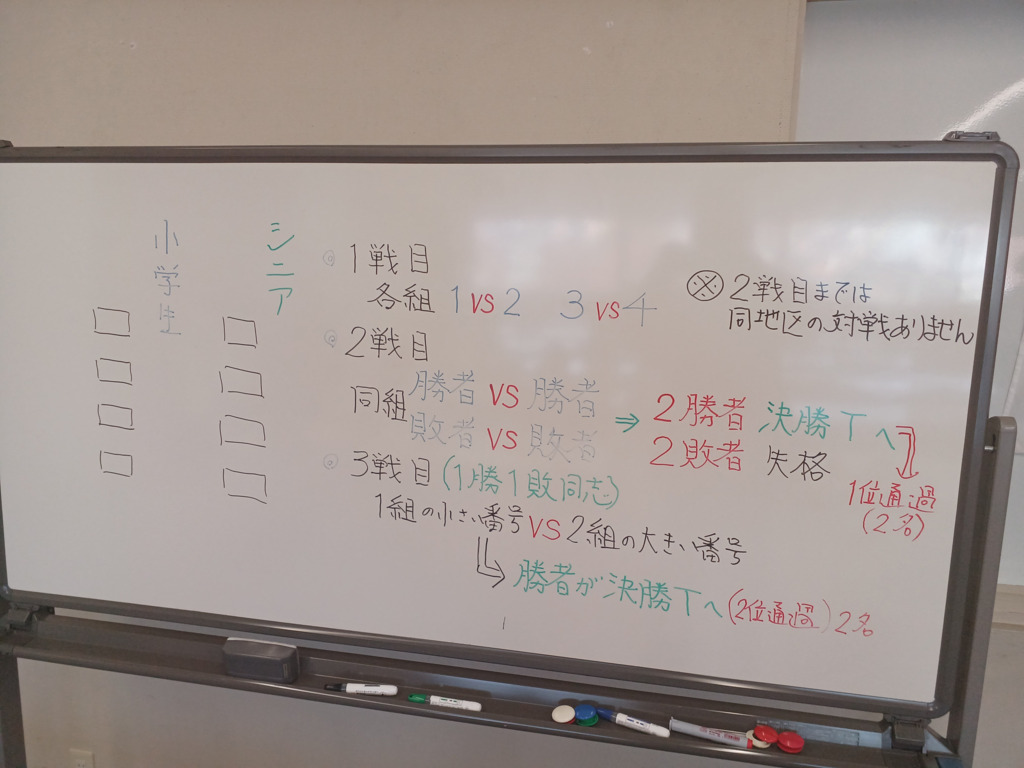 小学生
シニア
◎ 1戦目
各組 1 VS 2 3 VS 4
※ 2戦目までは
同地区の対戦ありません
◎ 2戦目
同組 勝者 VS 勝者
敗者 VS 敗者
⇒ 2勝者 決勝Tへ
2敗者 失格
1位通過
(2名)
◎ 3戦目 (1勝1敗同志)
1組の小さい番号 VS 2組の大きい番号
勝者が決勝Tへ (2位通過) 2名